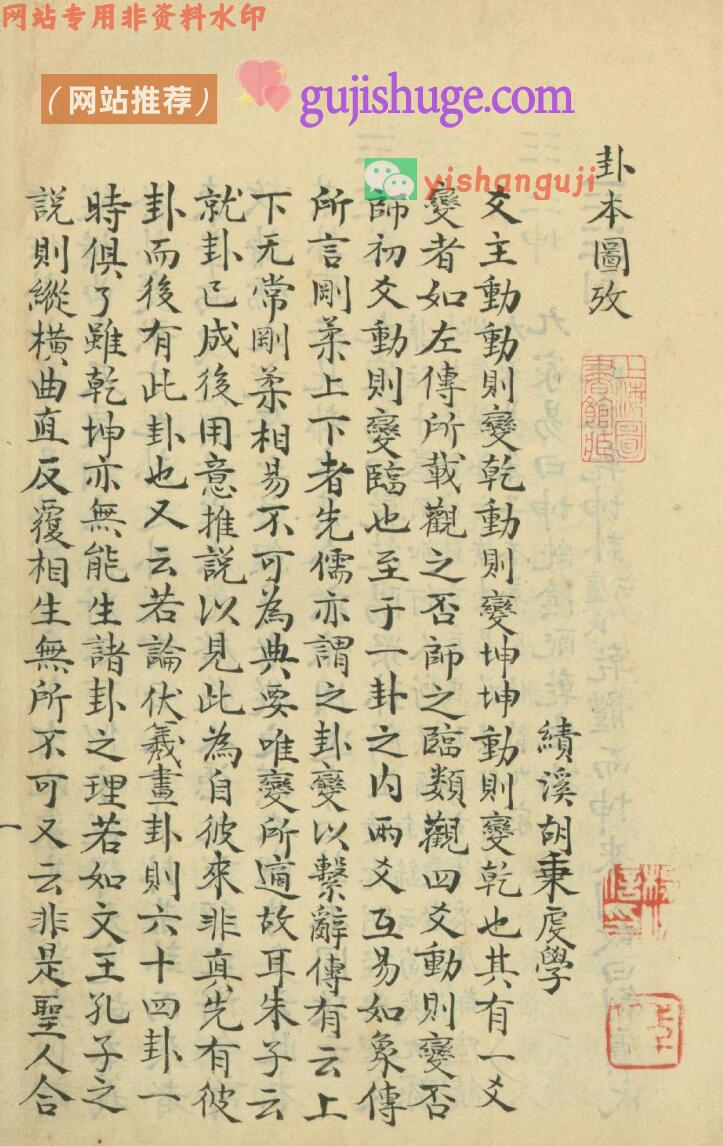 网站专用非资料水印
（网站推荐）
gujishuge.com
yishanguji
卦本圖攷
績溪胡秉虔學
爻主動動則變乾動則變坤坤動則變乾也其有一爻
變者如左傳所載觀之否師之臨類觀四爻動則變否
師初爻動則變臨也至于一卦之內兩爻互易如彖傳
所言剛柔上下者先儒亦謂之卦變以繫辭傳有云上
下无常剛柔相易不可為典要唯變所適故耳朱子云
就卦已成後用意推說以見此為自彼來非真先有彼
卦而後有此卦也又云若論伏羲畫卦則六十四卦一
時俱了雖乾坤亦無能生諸卦之理若如文王孔子之
說則縱橫曲直反覆相生無所不可又云非是聖人合
一
上海圖書館藏